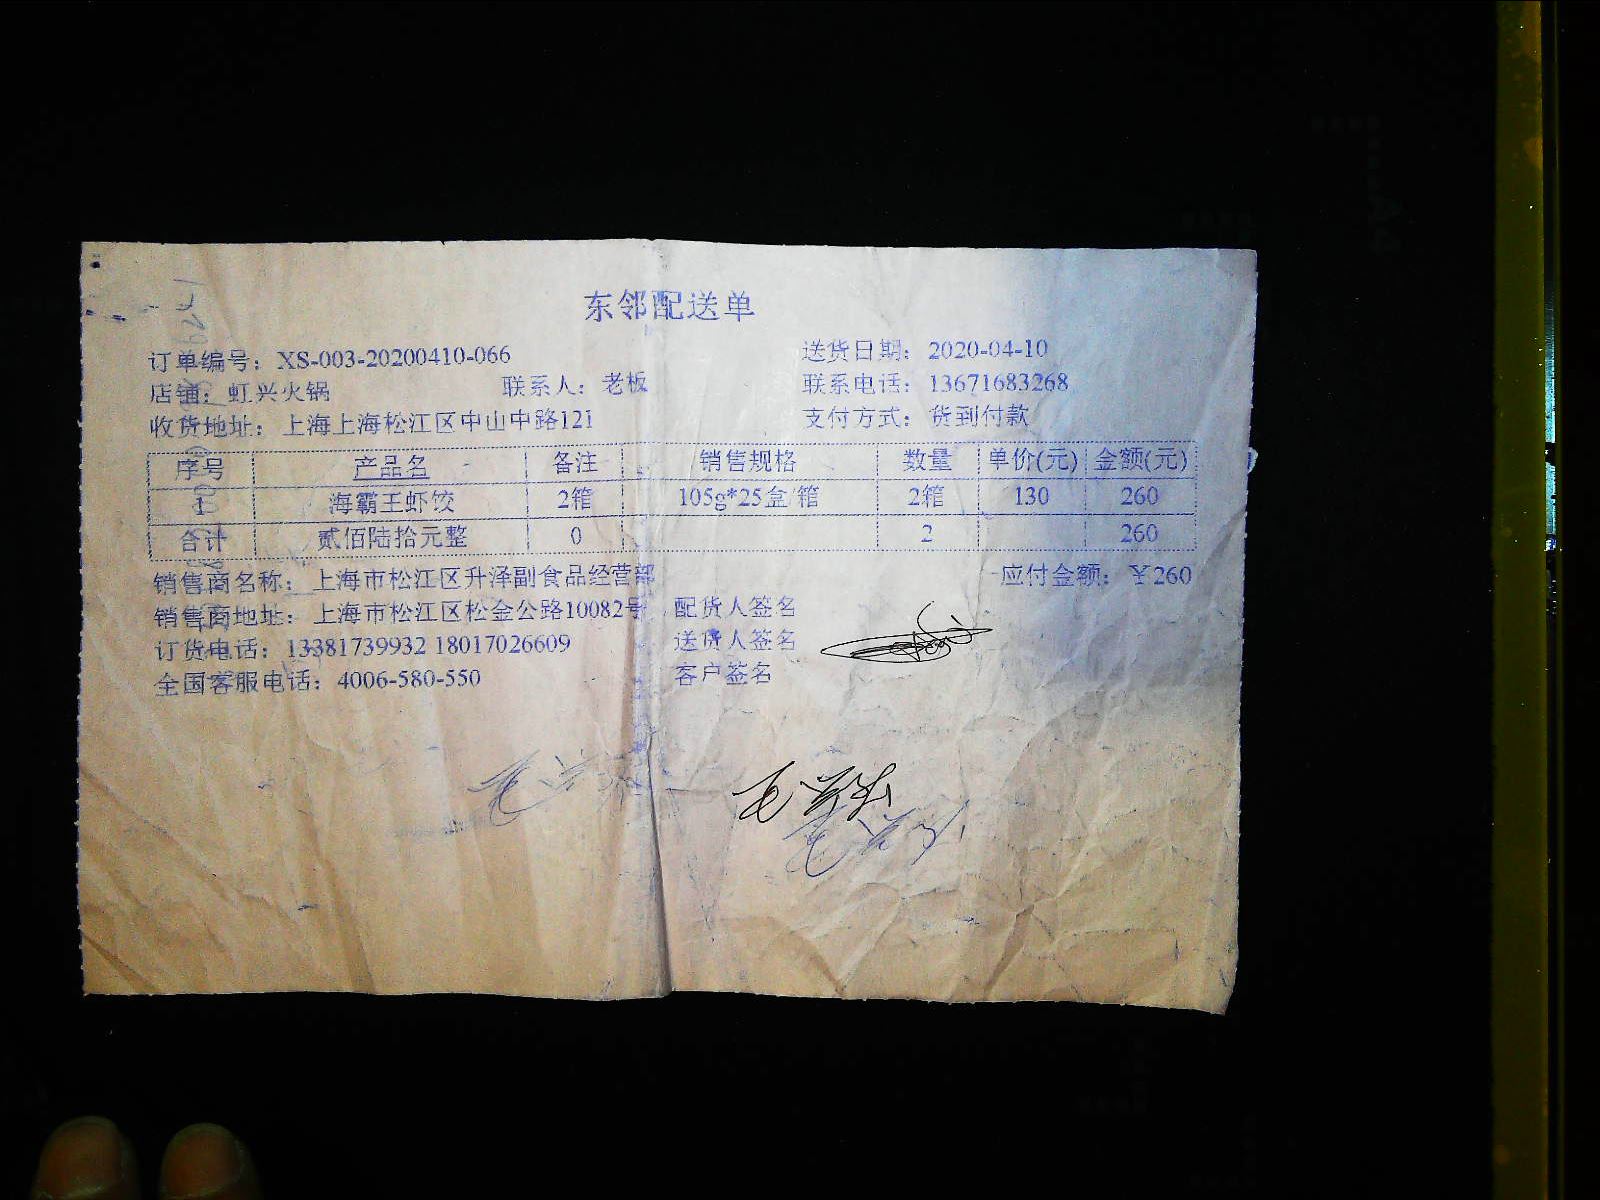 东邻配送单
订单编号：XS-003-20200410-066 送货日期：2020-04-10
店铺：虹兴火锅 联系人：老板 联系电话：13671683268
收货地址：上海上海松江区中山中路121 支付方式：货到付款
序号 产品名 备注 销售规格 数量 单价(元) 金额(元)
1 海霸王虾饺 2箱 105g*25盒/箱 2箱 130 260
合计 贰佰陆拾元整 0 2 260
销售商名称：上海市松江区升泽副食品经营部 应付金额：￥260
销售商地址：上海市松江区松金公路10082号 配货人签名
订货电话：13381739932 18017026609 送货人签名
全国客服电话：4006-580-550 客户签名